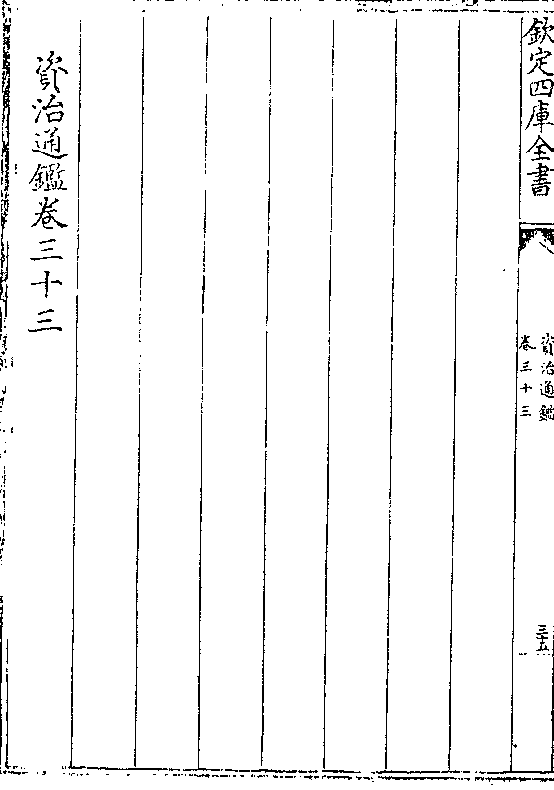 欽定四庫全書
資治通鑑
卷三十三
三五
資治通鑑卷三十三